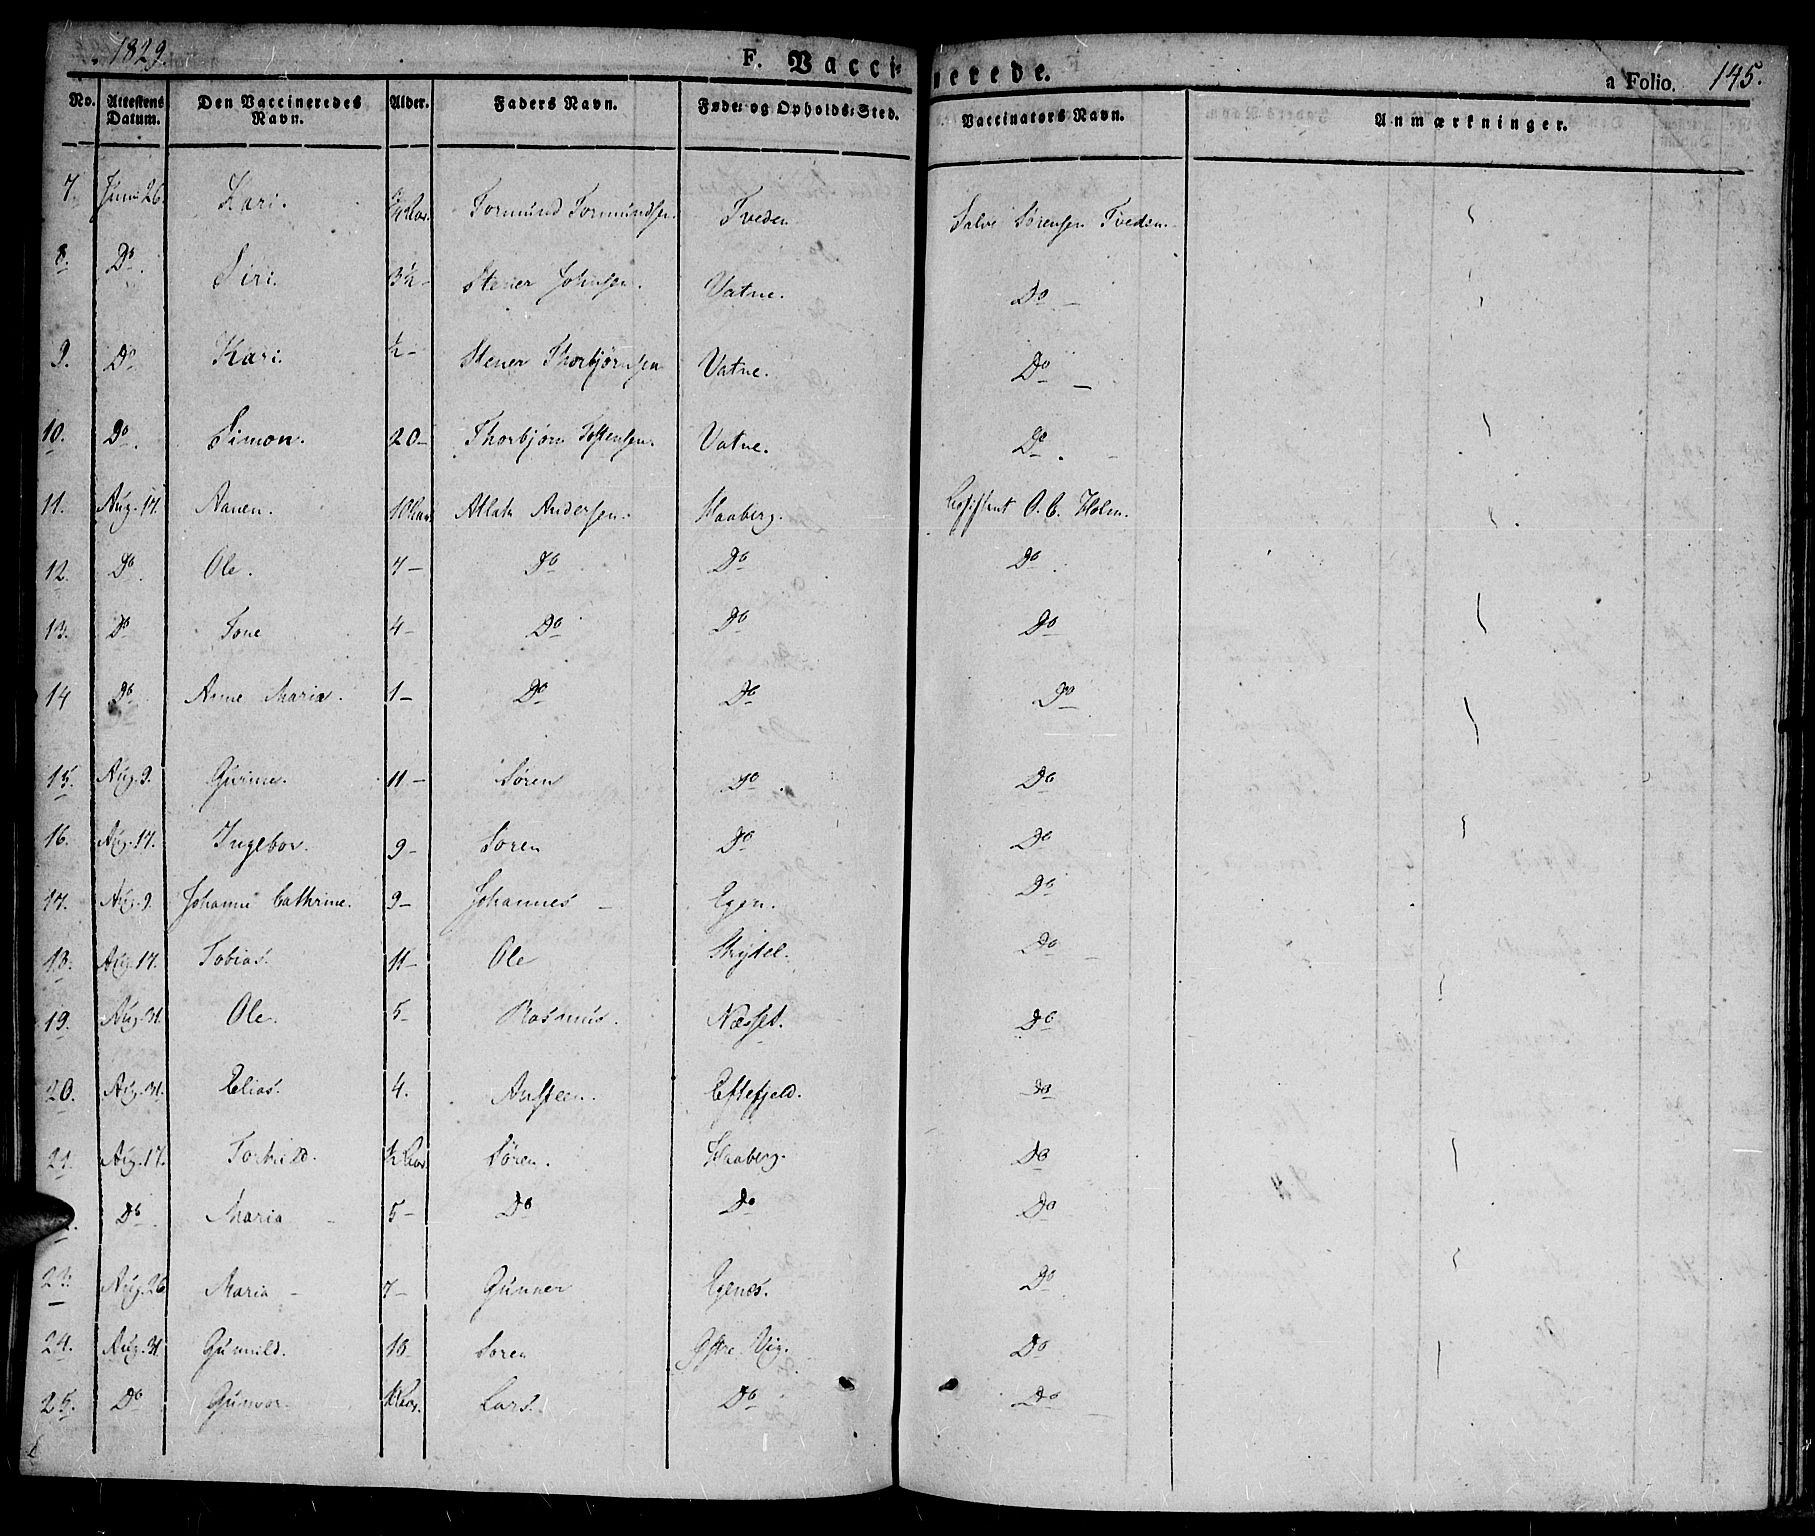 1829. F. Vaccinerede. a Folio. 145.
No. Attestens Datum. Den Vaccineredes Navn. Alder. Faders Navn. Føde- og Opholds-Sted. Vaccinators Navn. Anmærkninger.
7. Juni 26. Kari. Tormund Tormundsen. Tveden Salve Sørensen Tvedsn.
8. Do. Siri. 3½ – Stener Johnsen. Vatne. Do –
9. Do Kari. ½ – Stener Thorbjørnsen Vatne. Do –
10. Do. Simon. 20 – Thorbjørn Vatne. Do.
11. Aug. 17. Aanen. 10 Aar Atlak Andersen. Haaberg. Assistent O. C. Holm.
12. Do. Ole. 4 – Do Do Do.
13. Do Tone 4 – Do Do Do
14 Do. Anne Maria. 1 – Do Do Do
15. Aug. 9. Gurine. 11 – Søren Do. Do
16. Aug. 17. Ingebor. 9 – Søren Do Do
17. Aug. 9. Johanne Cathrine. 9 – Johannes – Egen. Do
18. Aug. 17. Tobias. 11 – Ole Do
19. Aug. 31. Ole. 5 – Rasmus. Næsset. Do
20. Aug. 31. Elias. 4. Austeen. Eftefjeld. Do
21. Aug. 17. Torkild. Søren. Haaberg. Do
Do. Maria – 5 – Do Do Do
23. Aug. 26 Maria – 7 – Gunner Egenes. Do
24. Aug. 31. Gunnild. 10 Søren Østre Vig. Do
25. Do Gunvor. Lars. Do Do